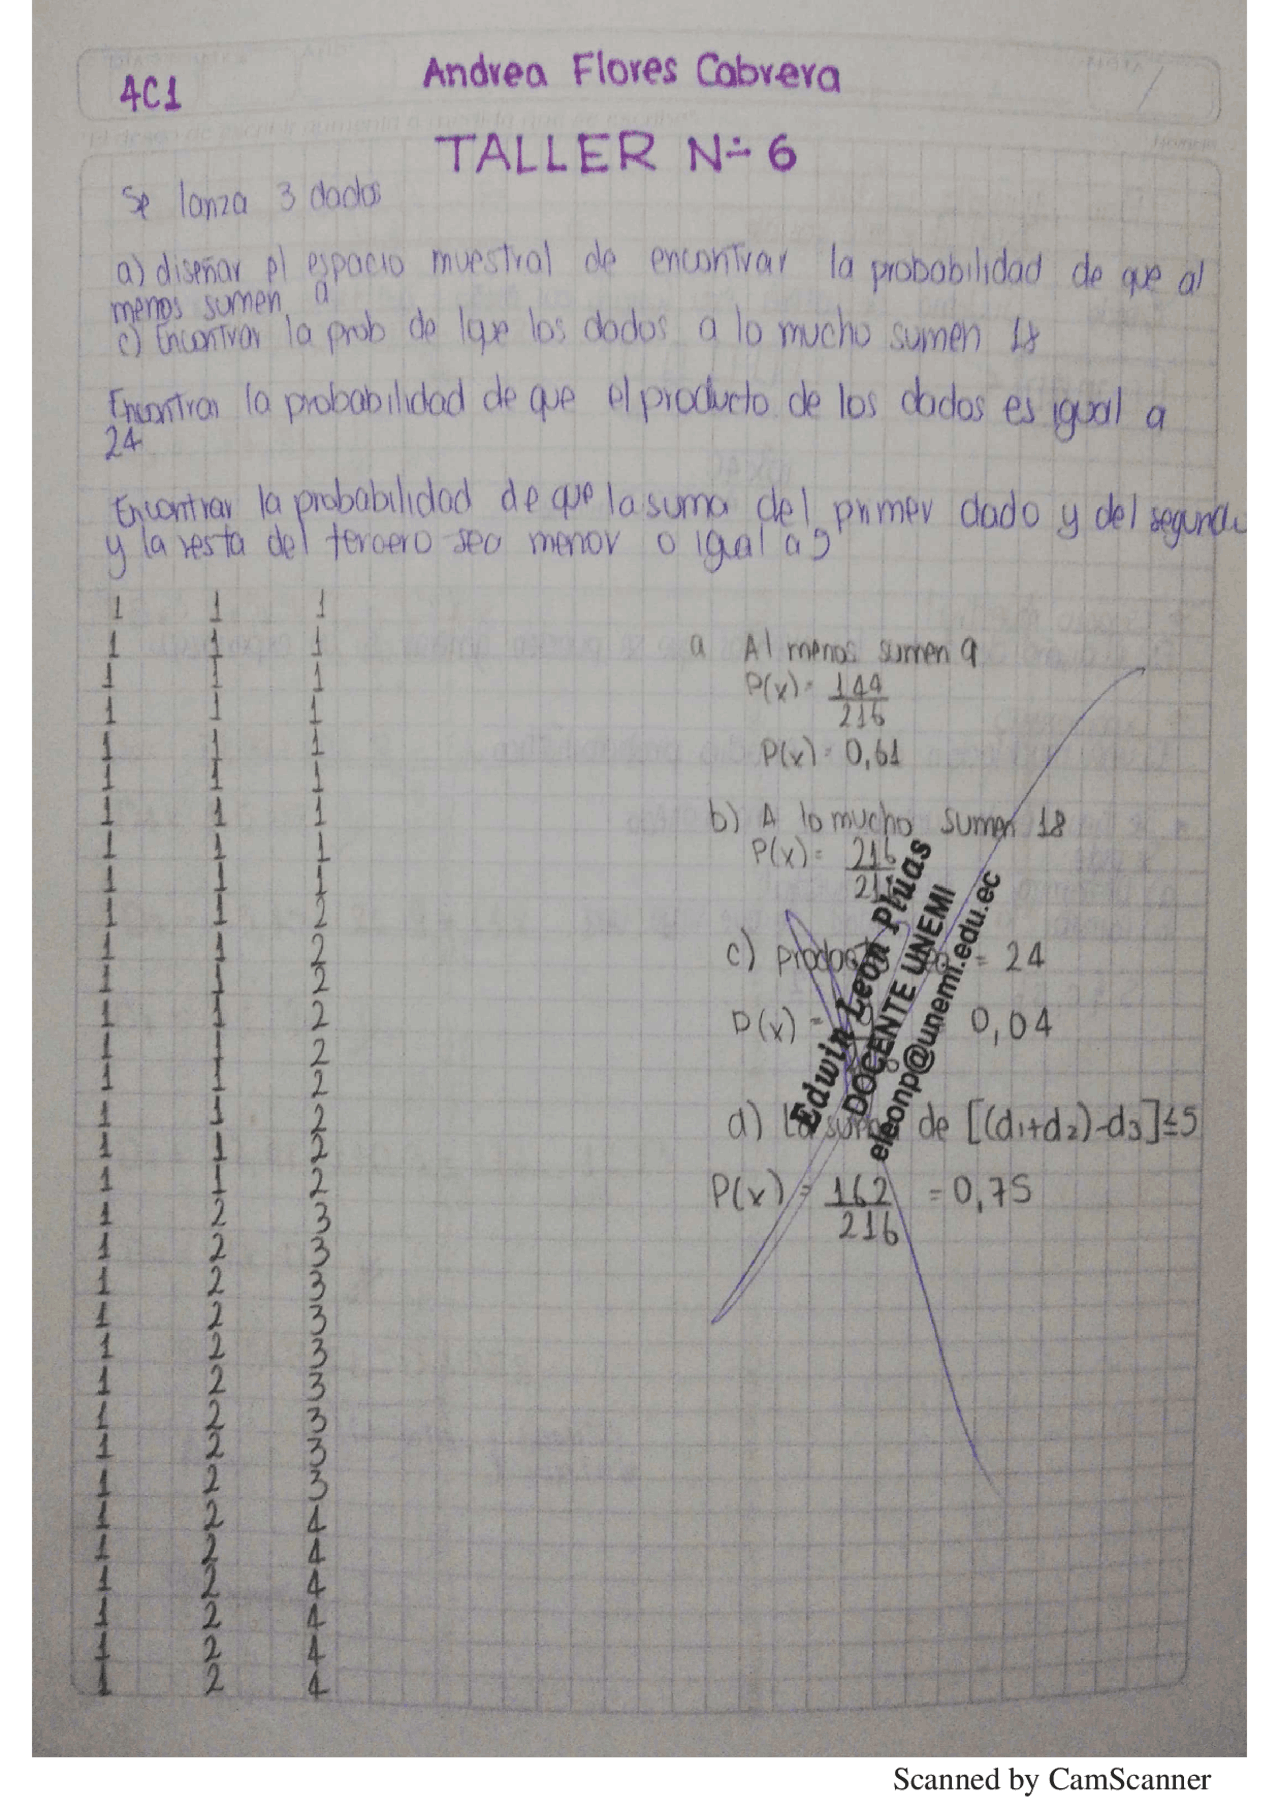 4C1
Andrea Flores Cabrera
TALLER N- 6
Se lanza 3 dados
a) diseñar el espacio muestral de encontrar la probabilidad de que al
menos sumen a
c) Encontrar la prob de lque los dados a lo mucho sumen 18
Encontrar la probabilidad de que el producto de los dados es igual a
24
Encontrar la probabilidad de que la suma del primer dado y del segundo
y la resta del tercero sea menor o igual a 5
1 1 1
1 1 1
1 1 1
1 1 1
1 1 1
1 1 1
1 1 1
1 1 1
1 1 1
1 1 2
1 1 2
1 1 2
1 1 2
1 1 2
1 1 2
1 1 2
1 1 2
1 1 2
1 2 3
1 2 3
1 2 3
1 2 3
1 2 3
1 2 3
1 2 3
1 2 3
1 2 3
1 2 4
1 2 4
1 2 4
1 2 4
1 2 4
1 2 4
a Al menos sumen 9
P(x)= 144
216
P(x)= 0,61
b) A lo mucho sumen 18
P(x)= 216
c) = 24
P(x) = 0,04
d) La suma de [(d1+d2)-d3]≤5
P(x) = 162 = 0,75
216
Edwin Leon Plúas
DOCENTE UNEMI
eleonp@unemi.edu.ec
Scanned by CamScanner